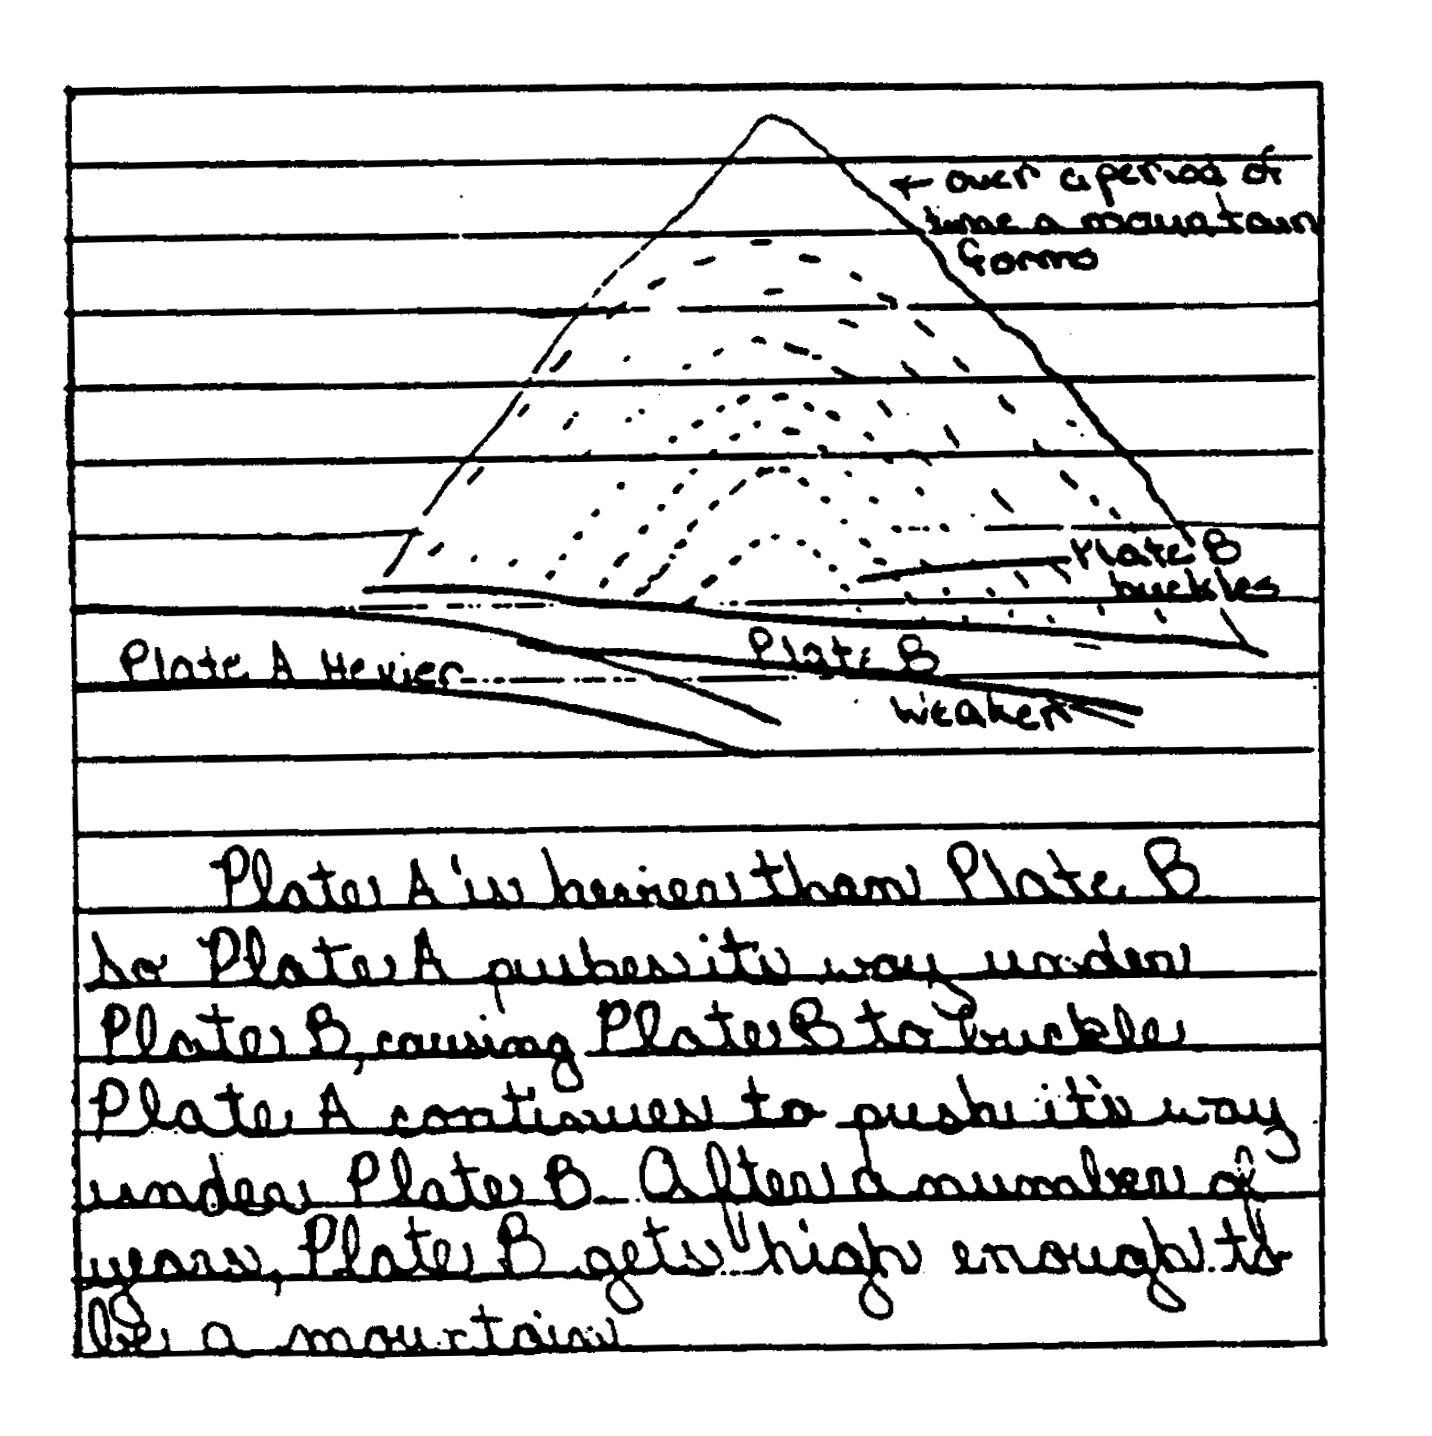 ← over a period of
time a mountain
forms
Plate B
buckles
Plate A Hevier
Plate B
Weaker
Plate A is hevier than Plate B
so Plate A pushes its way under
Plate B, causing Plate B to buckle
Plate A continues to push it's way
under Plate B. After a number of
years, Plate B gets "high enough to"
be a mountain